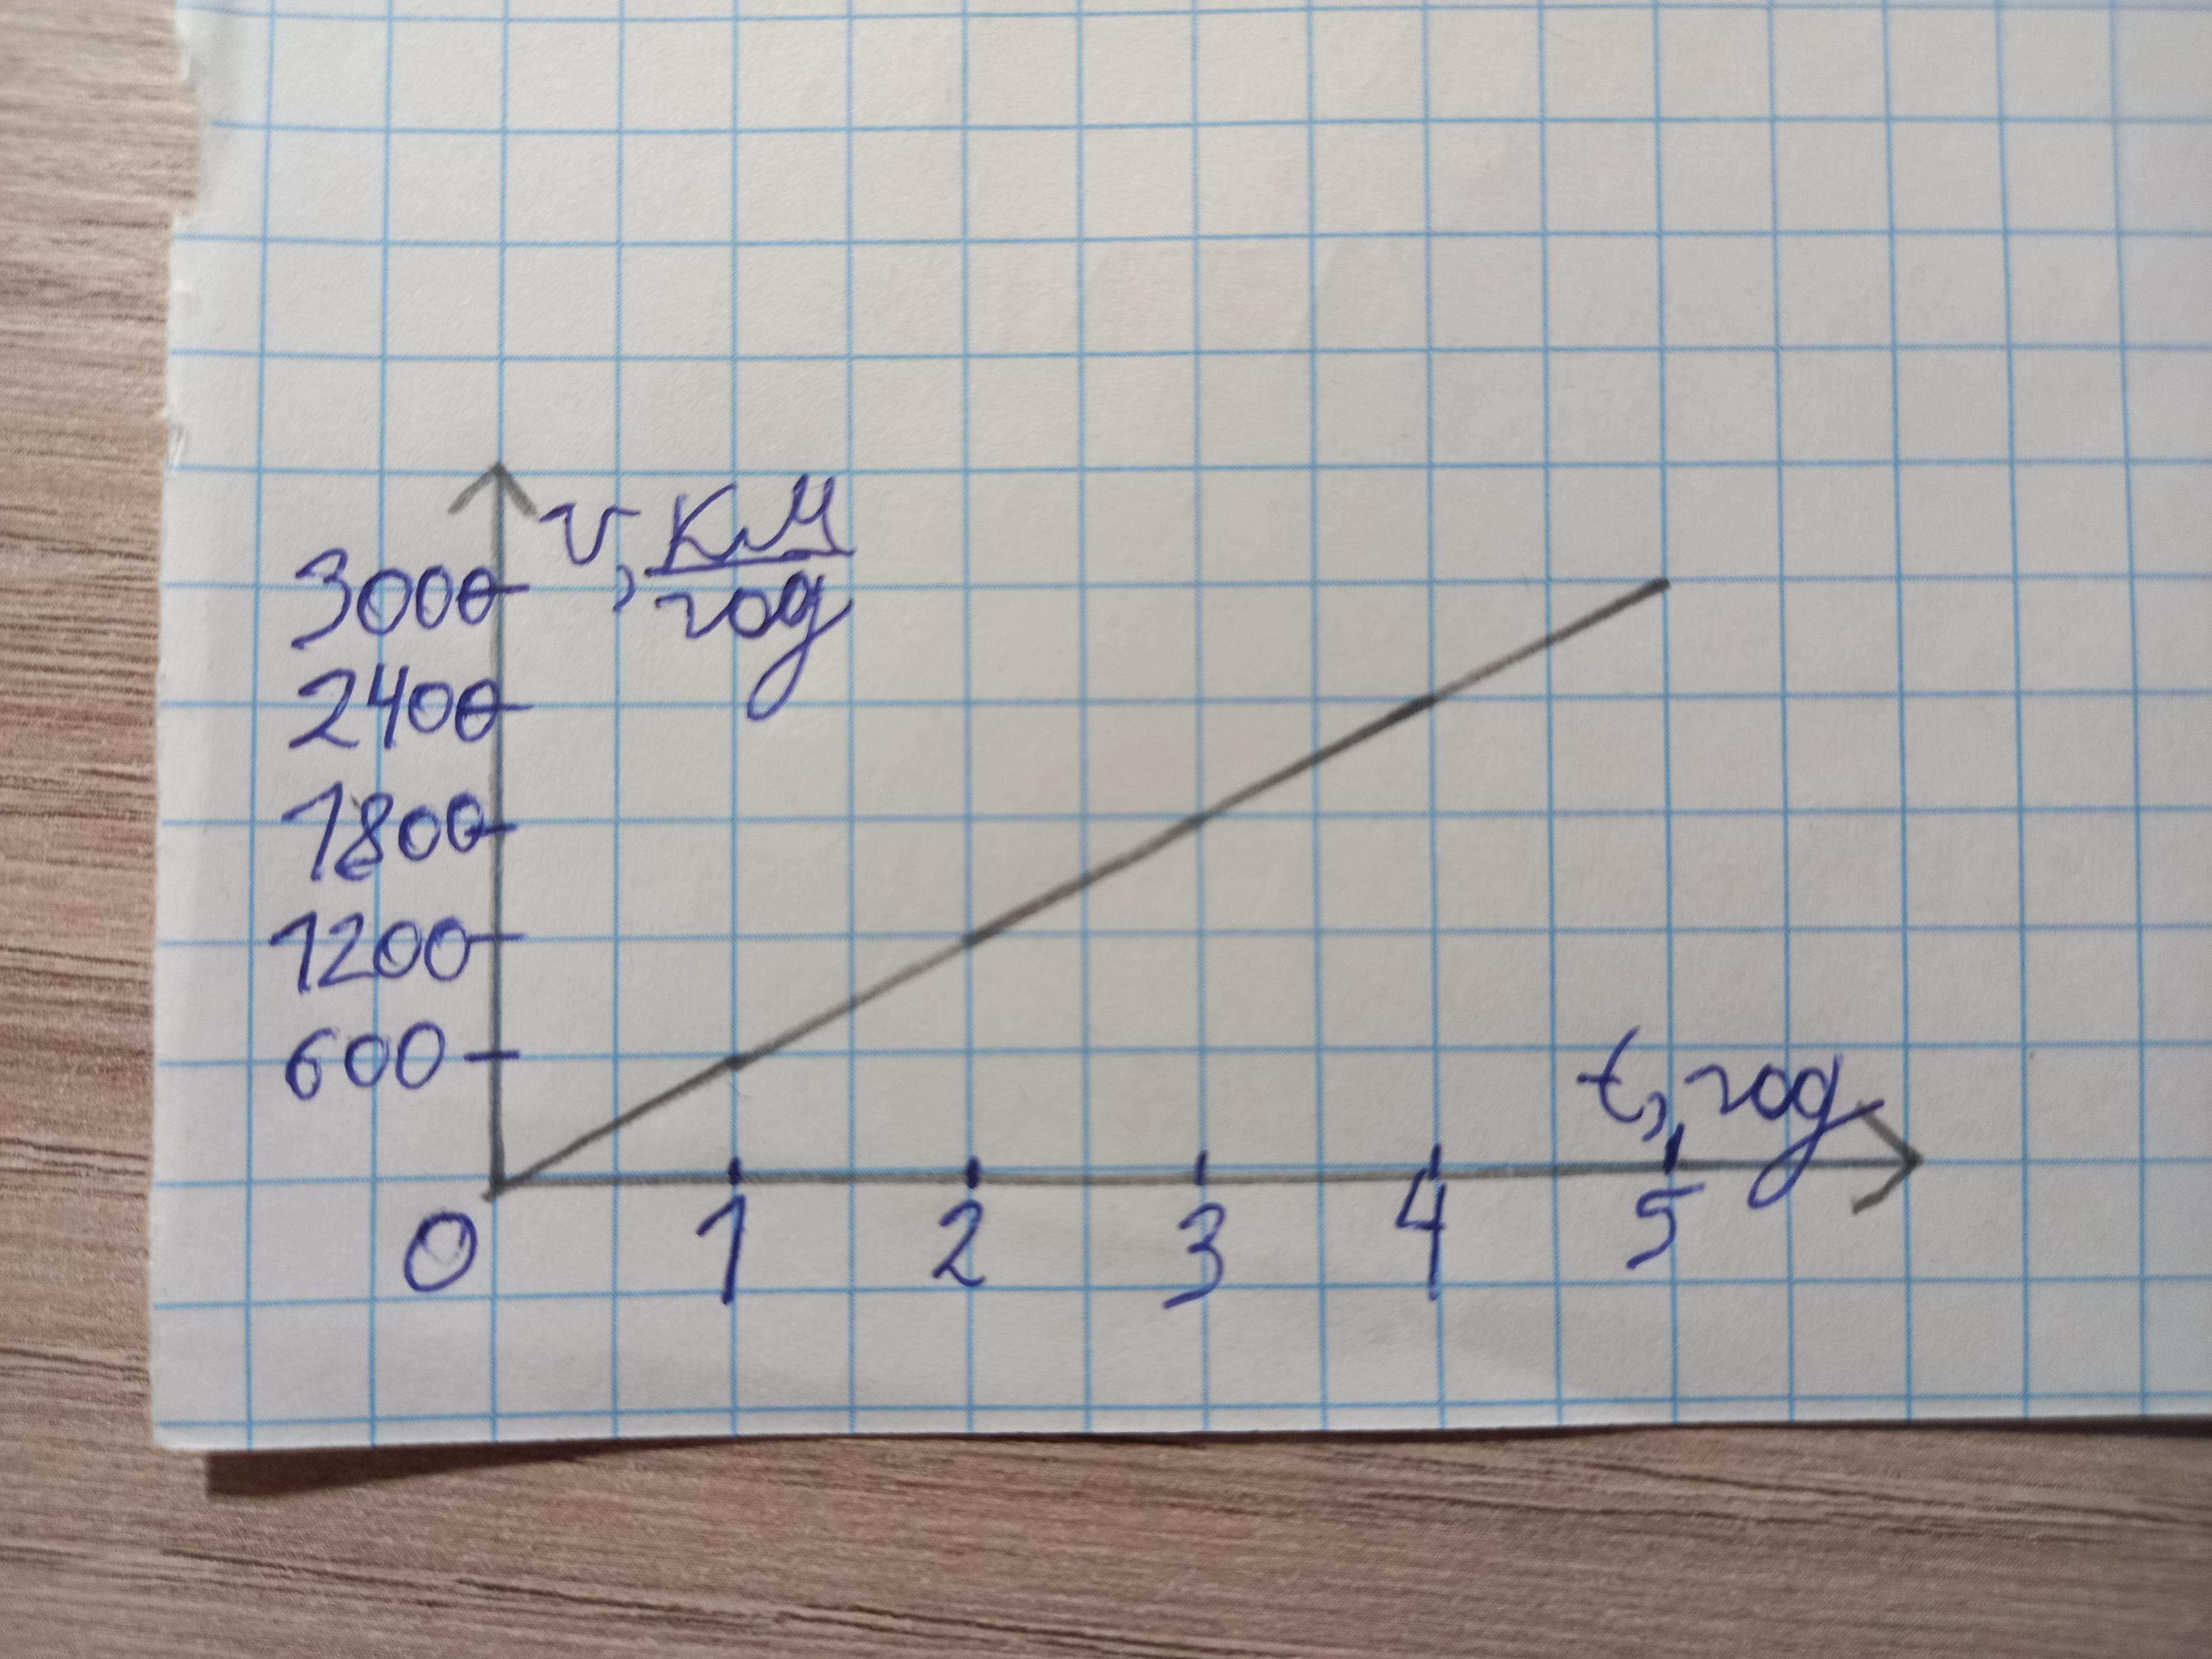 v, км/год
3000
2400
1800
1200
600
t, год
0 1 2 3 4 5